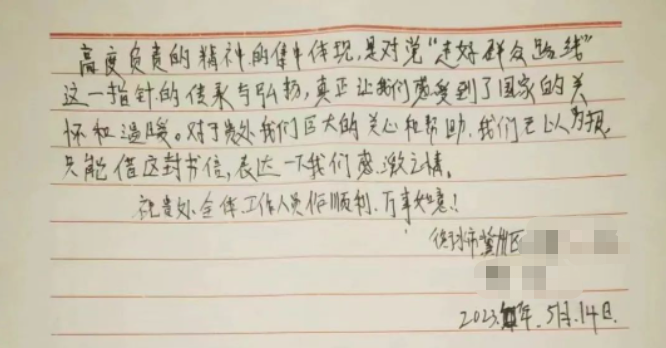 高度负责的精神的集中体现,是对党“走好群众路线”
这一指针的传承与弘扬,真正让我们感受到了国家的关
怀和温暖。对于贵处我们巨大的关心和帮助,我们无以为报,
只能借这封书信,表达一下我们感激之情。
祝贵处全体工作人员工作顺利.万事如意!
市冀州区
2023年.5月.14日.